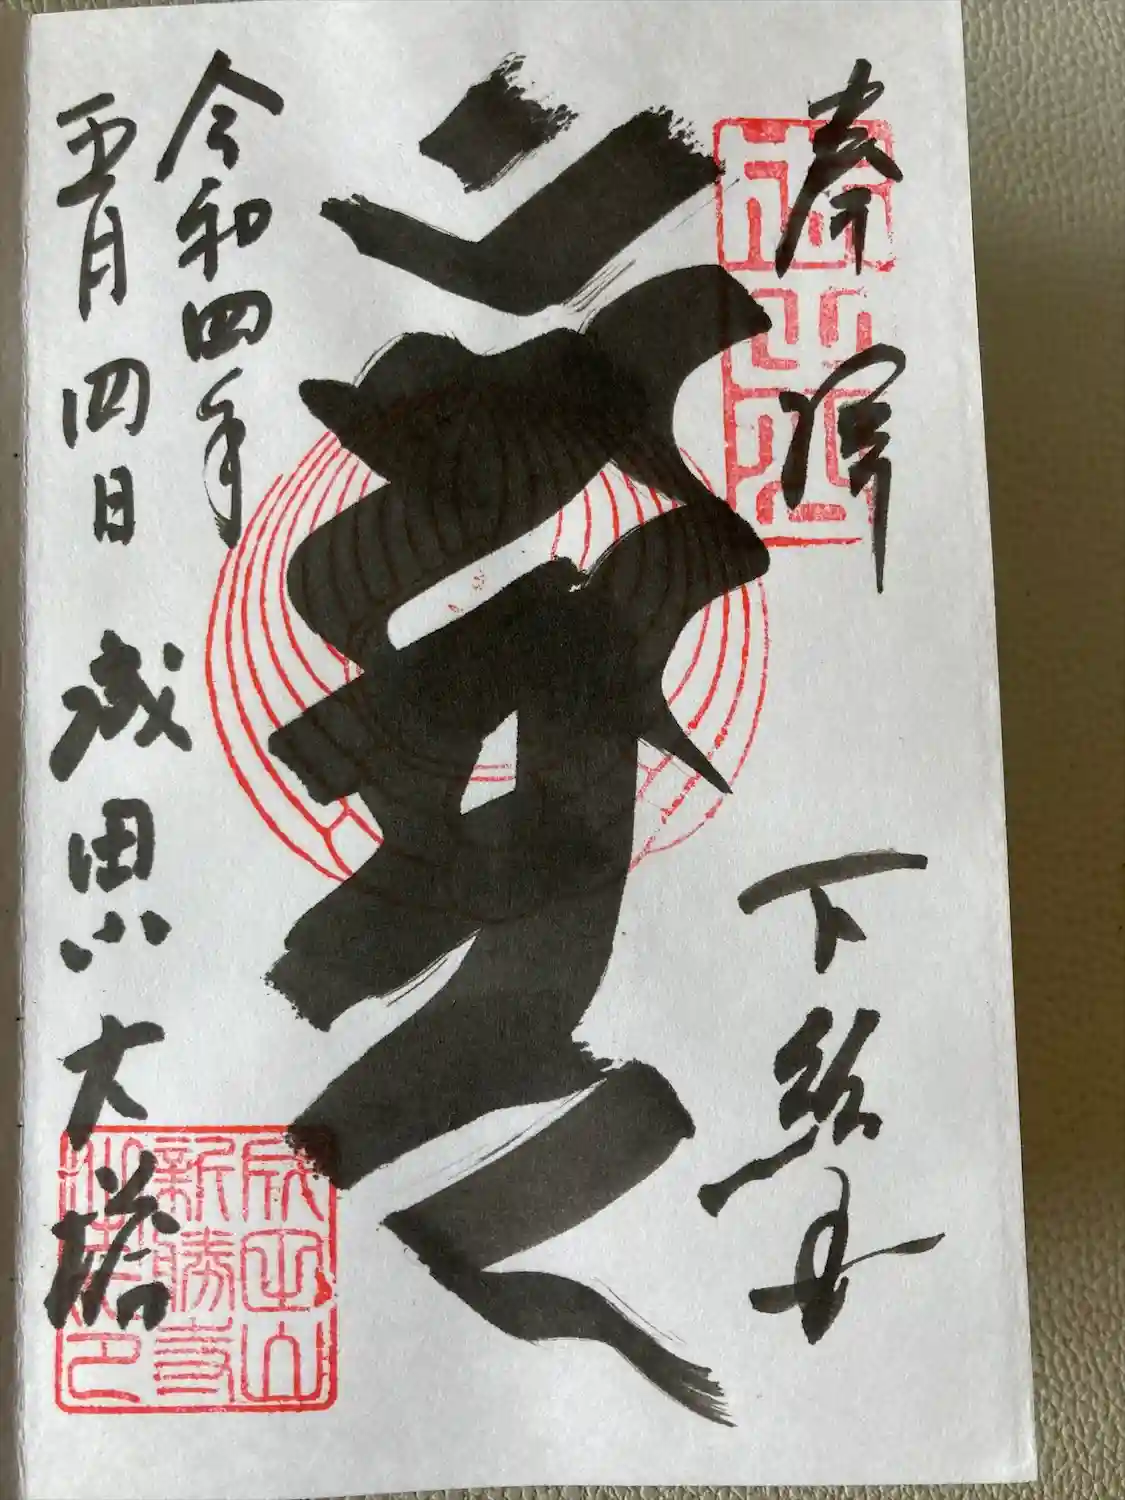 奉拝
成田山
下総国
令和四年
五月四日 成田山大塔
成田山
新勝寺